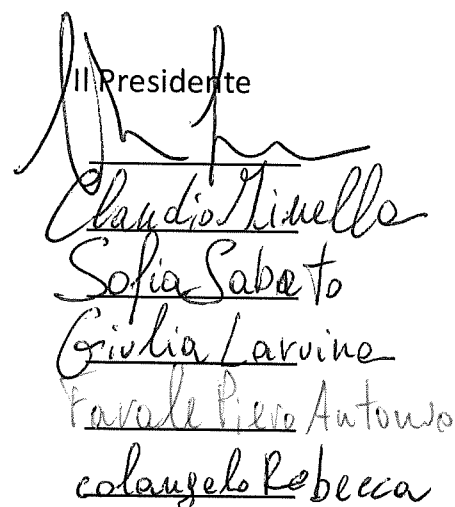 Il Presidente
Claudio Minella
Sofia Sabato
Giulia Laruina
Favale Piero Antonio
Colangelo Rebecca